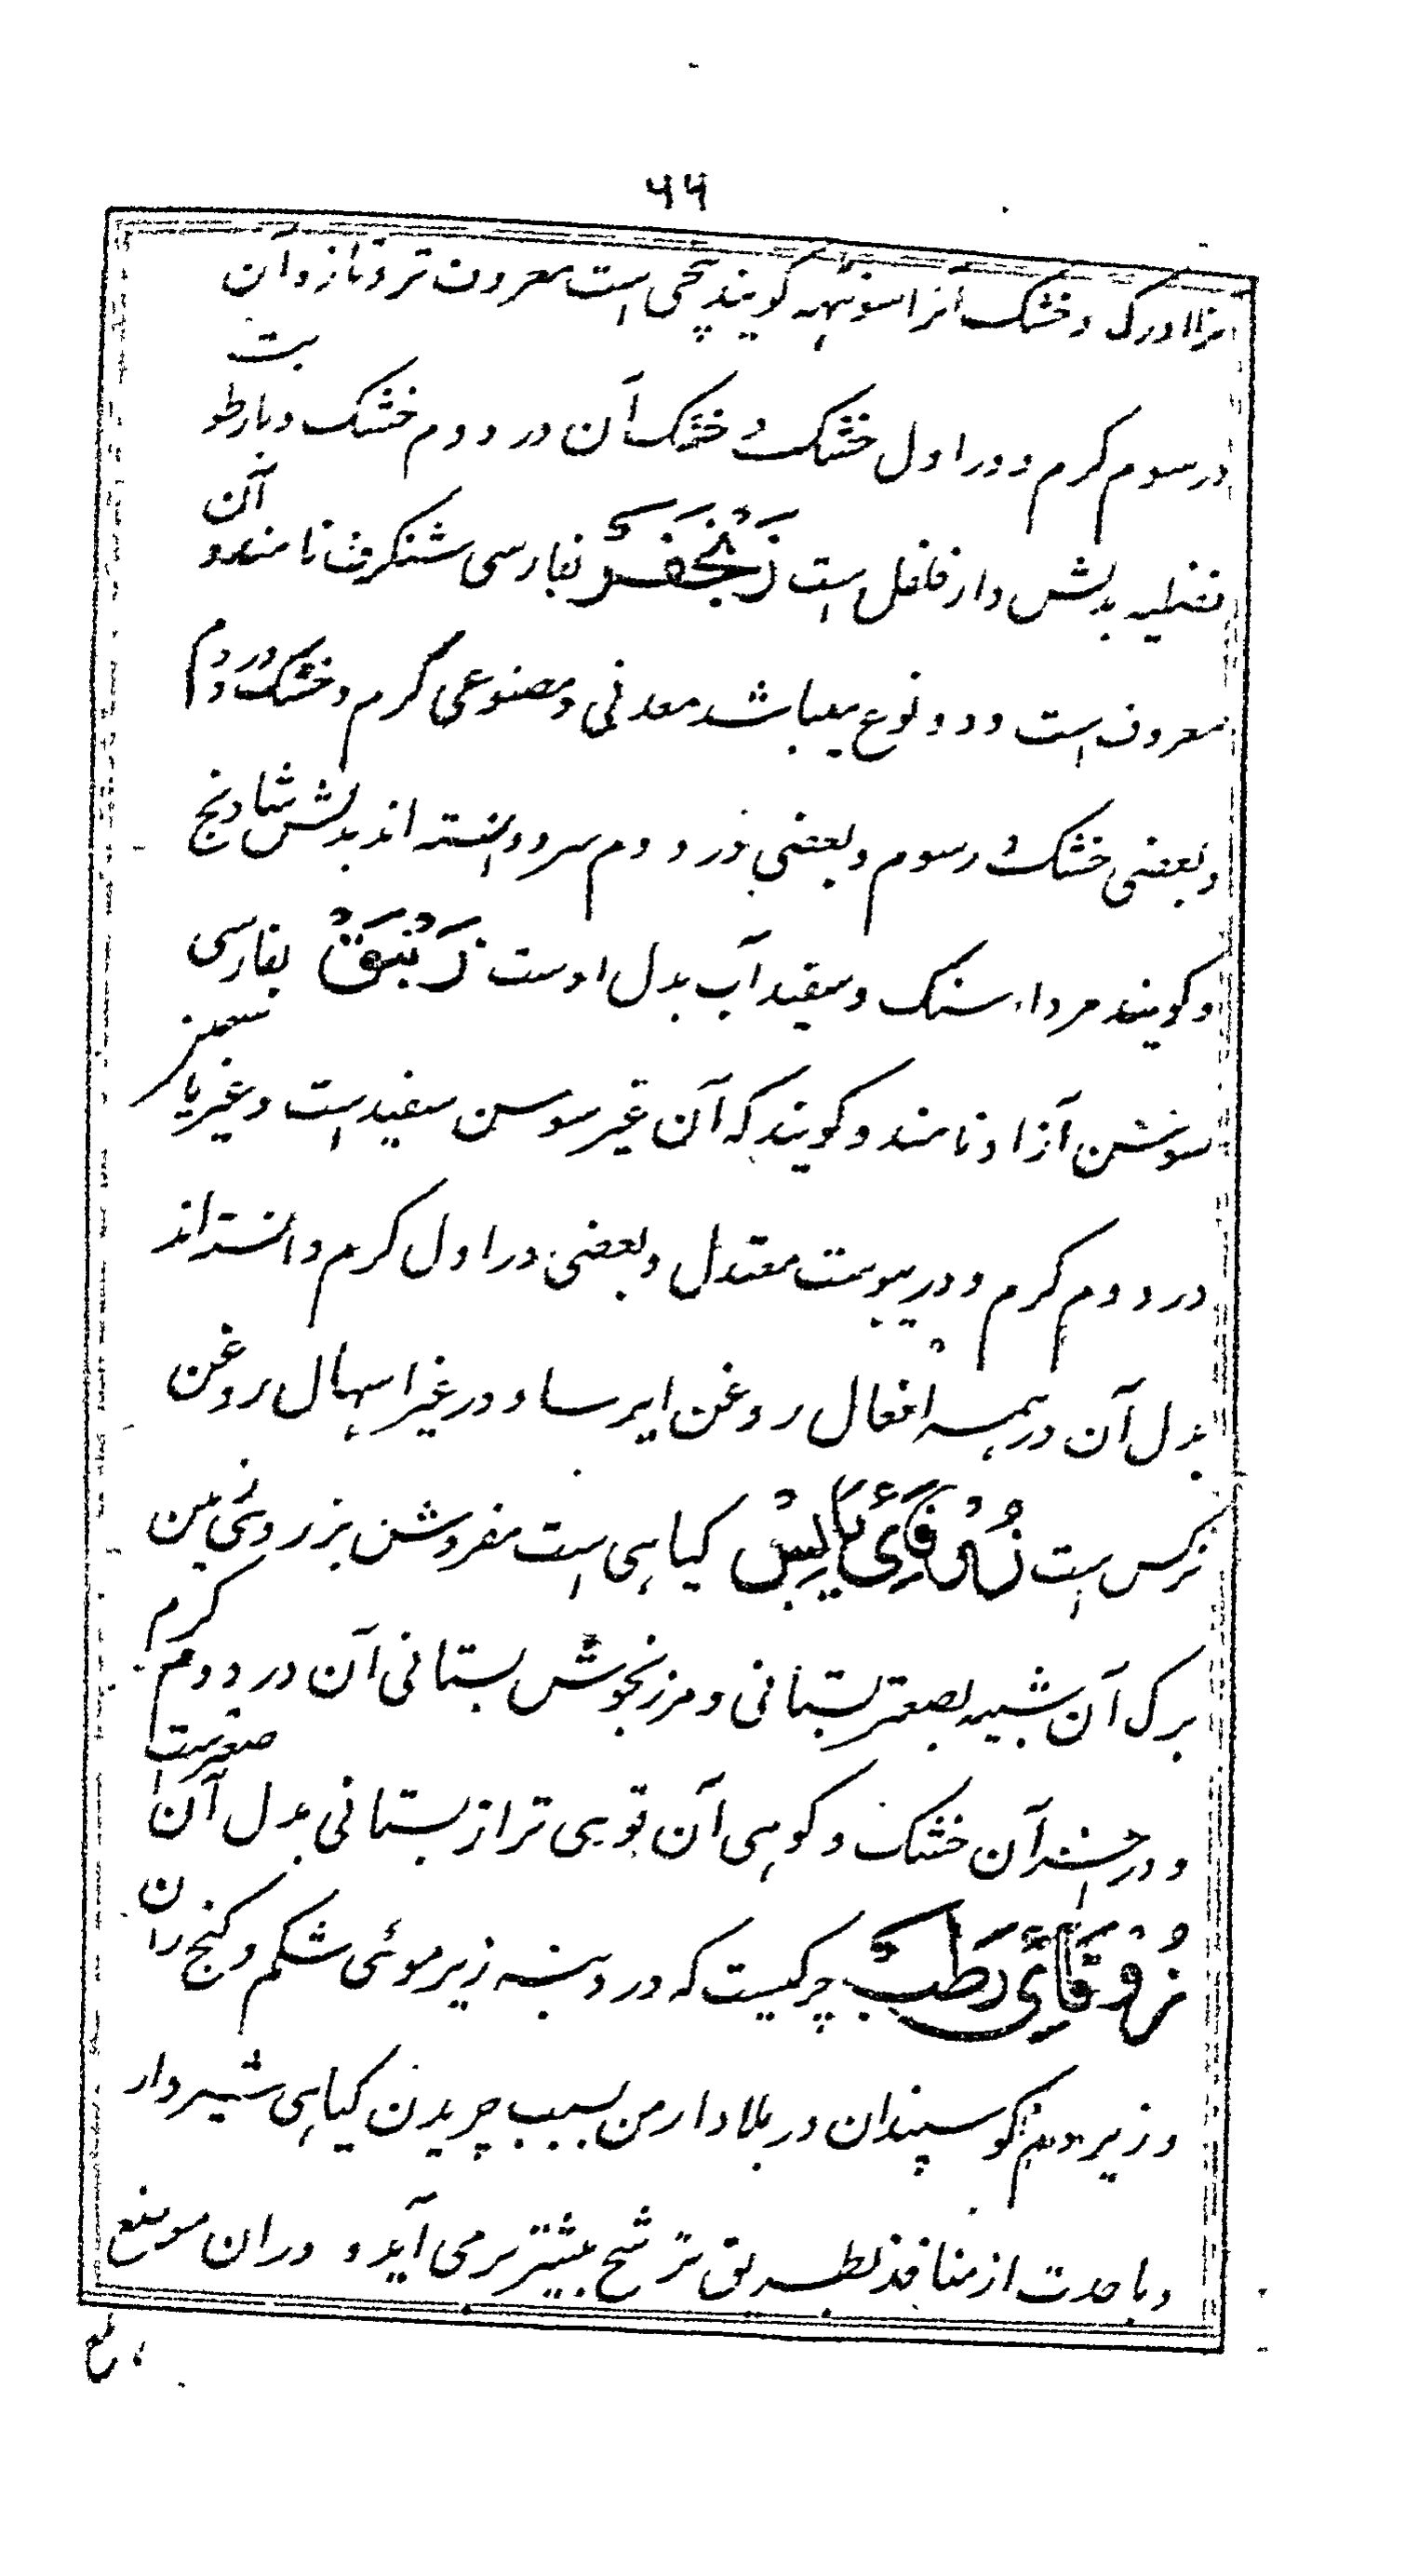 ۶۶
ترا ادرک و خشک آنرا سونٹھہ گویند بیخی است معروف تر و تازه آن
در سوم گرم و در اول خشک و خشک آن در دوم خشک و با رطوبت
فضلیه بدلش دار فلفل است زَنْجَفَر بفارسی شنگرف نامند و آن
معروف است و دو نوع میباشد معدنی و مصنوعی گرم و خشک در دوم
و بعضی خشک در سوم و بعضی در دوم سرد دانسته اند بدلش شادنج
و گویند مردار سنگ و سفید آب بدل اوست زَنْبَقْ بفارسی
سوسن آزاد نامند و گویند که آن غیر سوسن سفید است و غیر یاسمین
در دوم گرم و در یبوست معتدل و بعضی در اول گرم دانسته اند
بدل آن در همه افعال روغن ایرسا و در غیر اسهال روغن
نرگس است زُوْفَائے یَابِسْ گیاهی است مفروش بر روی زمین
برگ آن شبیه بصعتر بستانی و مرزنجوش بستانی آن در دوم گرم
و در آخر آن خشک و کوهی آن قوی تر از بستانی بدل آن صعتر است
زُوْفَائے رَطَبْ چرکیست که در دنبه زیر موئی شکم و کنج ران
و زیر دنبه گوسپندان در بلاد ارمن بسبب چریدن گیاهی شیردار
و با حدت از منافذ بطریق ترشح بیشتر بر می آید و در ان موضع